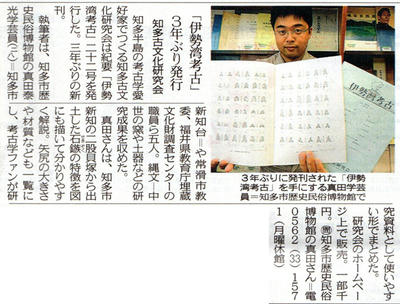 「伊勢湾考古」
3年ぶり発行
知多古文化研究会
知多半島の考古学愛
好家でつくる知多古文
化研究会は紀要「伊勢
湾考古」二十二号を発
行した。三年ぶりの新
刊。
執筆者は、知多市歴
史民俗博物館の真田泰
光学芸員=知多市
新知台=や常滑市教
委、福井県教育庁埋蔵
文化財調査センターの
職員ら五人。縄文-中
世の窯や土器などの研
究成果を収めた。
真田さんは、知多市
新知の二股貝塚から出
土した石鏃の特徴を図
にも描いて分かりやす
く解説。矢尻の大きさ
や材質なども一覧に
し、考古学ファンが研
究資料として使いやす
い形でまとめた。
研究会のホームペー
ジ上で販売。一部千
円。問知多市歴史民俗
博物館の真田さん=電
0562(33)157
1(月曜休館)
伊勢湾考古
3年ぶりに発刊された「伊勢
湾考古」を手にする真田学芸
員=知多市歴史民俗博物館で